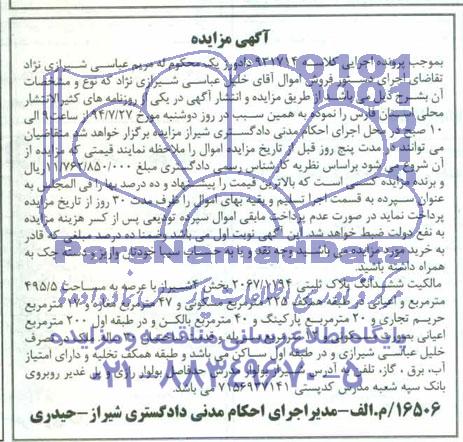 آگهی مزایده
بموجب پرونده اجرایی کلاسه ۹۳۱۷۱۴ دادورز یک محکوم له مریم عباسی شیرازی نژاد
تقاضای اجرای دستور فروش اموال آقای خلیل عباسی شیرازی نژاد که نوع و مشخصات
آن بشرح ذیل می باشد از طریق مزایده و انتشار آگهی در یکی از روزنامه های کثیرالانتشار
محلی استان فارس را نموده به همین سبب در روز دوشنبه مورخ ۹۴/۷/۲۷ از ساعت ۹ الی
۱۰ صبح در محل اجرای احکام مدنی دادگستری شیراز مزایده برگزار خواهد شد متقاضیان
می توانند تا مدت پنج روز قبل از تاریخ مزایده اموال را ملاحظه نمایند قیمتی که مزایده از
آن شروع می شود براساس نظریه کارشناس رسمی دادگستری مبلغ ریال
و برنده مزایده کسی است که بالاترین قیمت را پیشنهاد و ده درصد بها را فی المجلس به
عنوان سپرده به قسمت اجرا تسلیم و بقیه بهای اموال را ظرف مدت ۳۰ روز از تاریخ مزایده
پرداخت نماید در صورت عدم پرداخت مابقی اموال سپرده تودیعی پس از کسر هزینه مزایده
به نفع دولت ضبط خواهد شد. این آگهی نوبت اول می باشد. ضمنا ده درصد مبلغی که قادر
به خرید مورد مزایده می باشید وجه نقد و یا به حساب سیبا خودتان واریز و دسته چک به
همراه داشته باشید.
مالکیت ششدانگ پلاک ثبتی ۲۰۶۷/۱۱۹۴ بخش ۴ شیراز با عرصه به مساحت ۴۹۵/۵
مترمربع و اعیانی در طبقه همکف ۲۲۵ مترمربع مسکونی و ۴۷ مترمربع مغازه و مترمربع
حریم تجاری و ۲۰ مترمربع پارکینگ و ۴۰ مترمربع بالکن و در طبقه اول ۲۰۰ مترمربع
اعیانی
خلیل عباسی شیرازی و در طبقه اول ساکن می باشد و طبقه همکف تخلیه و دارای امتیاز
آب، برق، گاز، تلفن به آدرس شیراز بلوار مدرس حدفاصل بولوار رازی و پل غدیر روبروی
بانک سپه شعبه مدرس کدپستی ۷۱۵۶۹۳۷۱۴۱ می باشد.
۱۶۵۰۶/م.الف-مدیر اجرای احکام مدنی دادگستری شیراز-حیدری
ParsNamadData
پایگاه اطلاع رسانی مناقصه و مزایده
۰۲۱-۸۸۳۴۹۶۷۰-۵